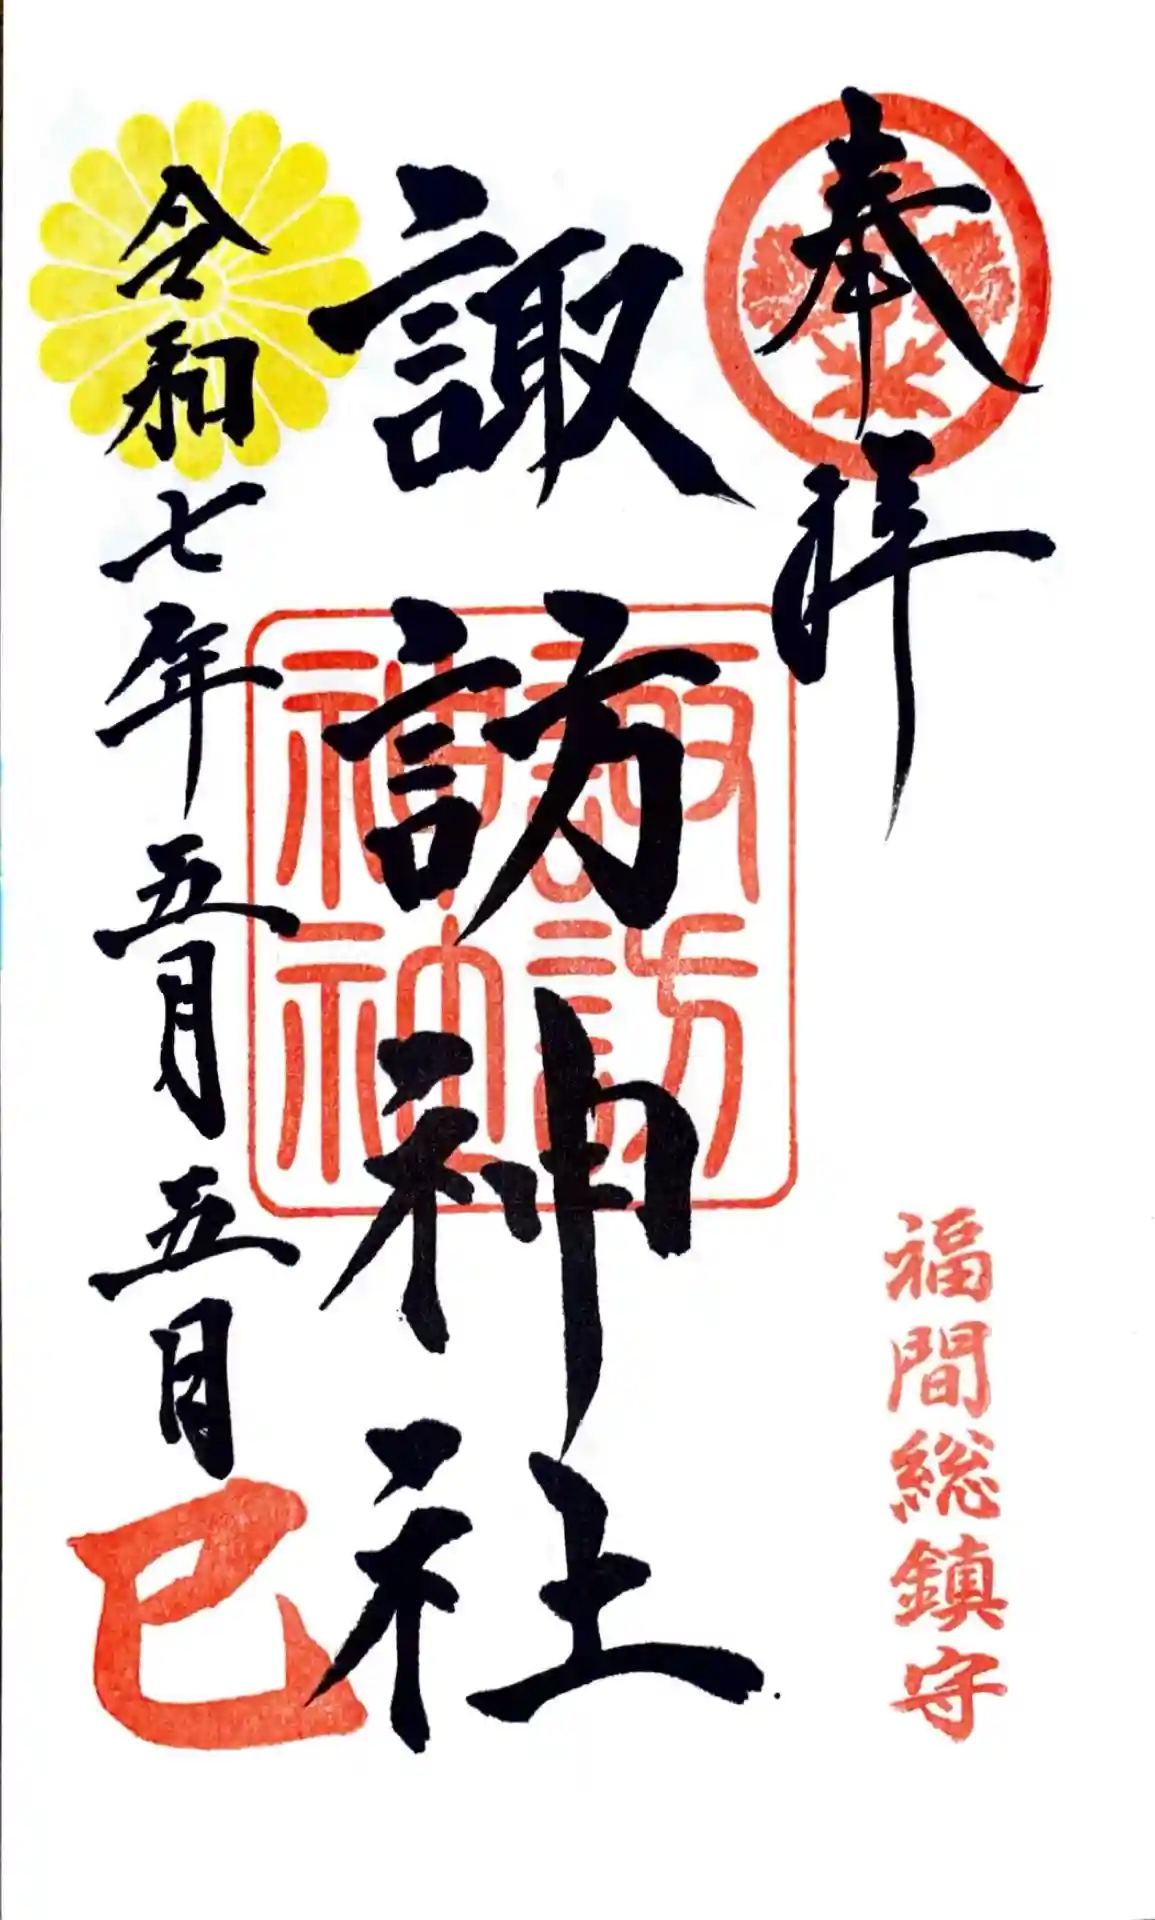 奉拝
福間総鎮守
諏訪神社
諏訪
神社
令和七年五月五日
巳